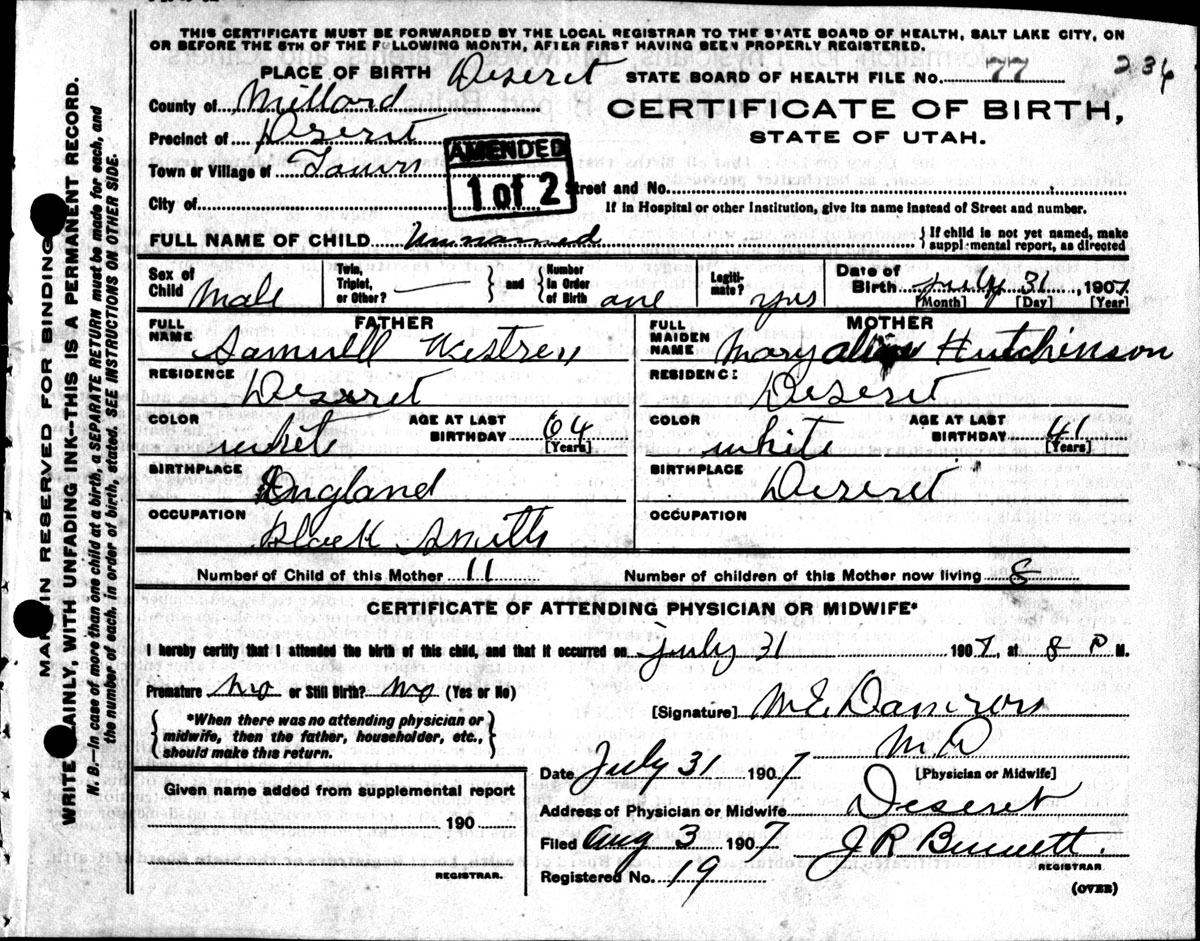 THIS CERTIFICATE MUST BE FORWARDED BY THE LOCAL REGISTRAR TO THE STATE BOARD OF HEALTH, SALT LAKE CITY, ON
OR BEFORE THE 5TH OF THE FOLLOWING MONTH, AFTER FIRST HAVING BEEN PROPERLY REGISTERED.
PLACE OF BIRTH Deseret STATE BOARD OF HEALTH FILE NO. 77 234
County of Millard
CERTIFICATE OF BIRTH,
Precinct of Deseret
STATE OF UTAH.
Town or Village of Town
AMENDED
1 of 2
Street and No.
City of
If in Hospital or other Institution, give its name instead of Street and number.
FULL NAME OF CHILD Unnamed { If child is not yet named, make
suppl-mental report, as directed
Sex of Child Male
Twin, Triplet, or Other? —
} and {
Number in Order of Birth one
Legitimate? yes
Date of Birth July 31, 1907.
[Month] [Day] [Year]
FATHER
FULL NAME Samuell
RESIDENCE Deseret
COLOR white AGE AT LAST BIRTHDAY 64 [Years]
BIRTHPLACE England
OCCUPATION Black Smith
MOTHER
FULL MAIDEN NAME Mary Hutchinson
RESIDENCE Deseret
COLOR white AGE AT LAST BIRTHDAY 41 [Years]
BIRTHPLACE Deseret
OCCUPATION
Number of Child of this Mother 11 Number of children of this Mother now living 8
CERTIFICATE OF ATTENDING PHYSICIAN OR MIDWIFE*
I hereby certify that I attended the birth of this child, and that it occurred on July 31 1907, at 8 P M.
Premature No or Still Birth? No (Yes or No)
[Signature] M E Damron
M D
[Physician or Midwife]
{ *When there was no attending physician or
midwife, then the father, householder, etc.,
should make this return. }
Date July 31 1907
Given name added from supplemental report
190
REGISTRAR.
Address of Physician or Midwife Deseret
Filed Aug 3 1907 J R Bennett.
REGISTRAR
Registered No. 19
(OVER)
MARGIN RESERVED FOR BINDING
WRITE PLAINLY, WITH UNFADING INK—THIS IS A PERMANENT RECORD.
N. B.—In case of more than one child at a birth, a SEPARATE RETURN must be made for each, and
the number of each, in order of birth, stated. SEE INSTRUCTIONS ON OTHER SIDE.